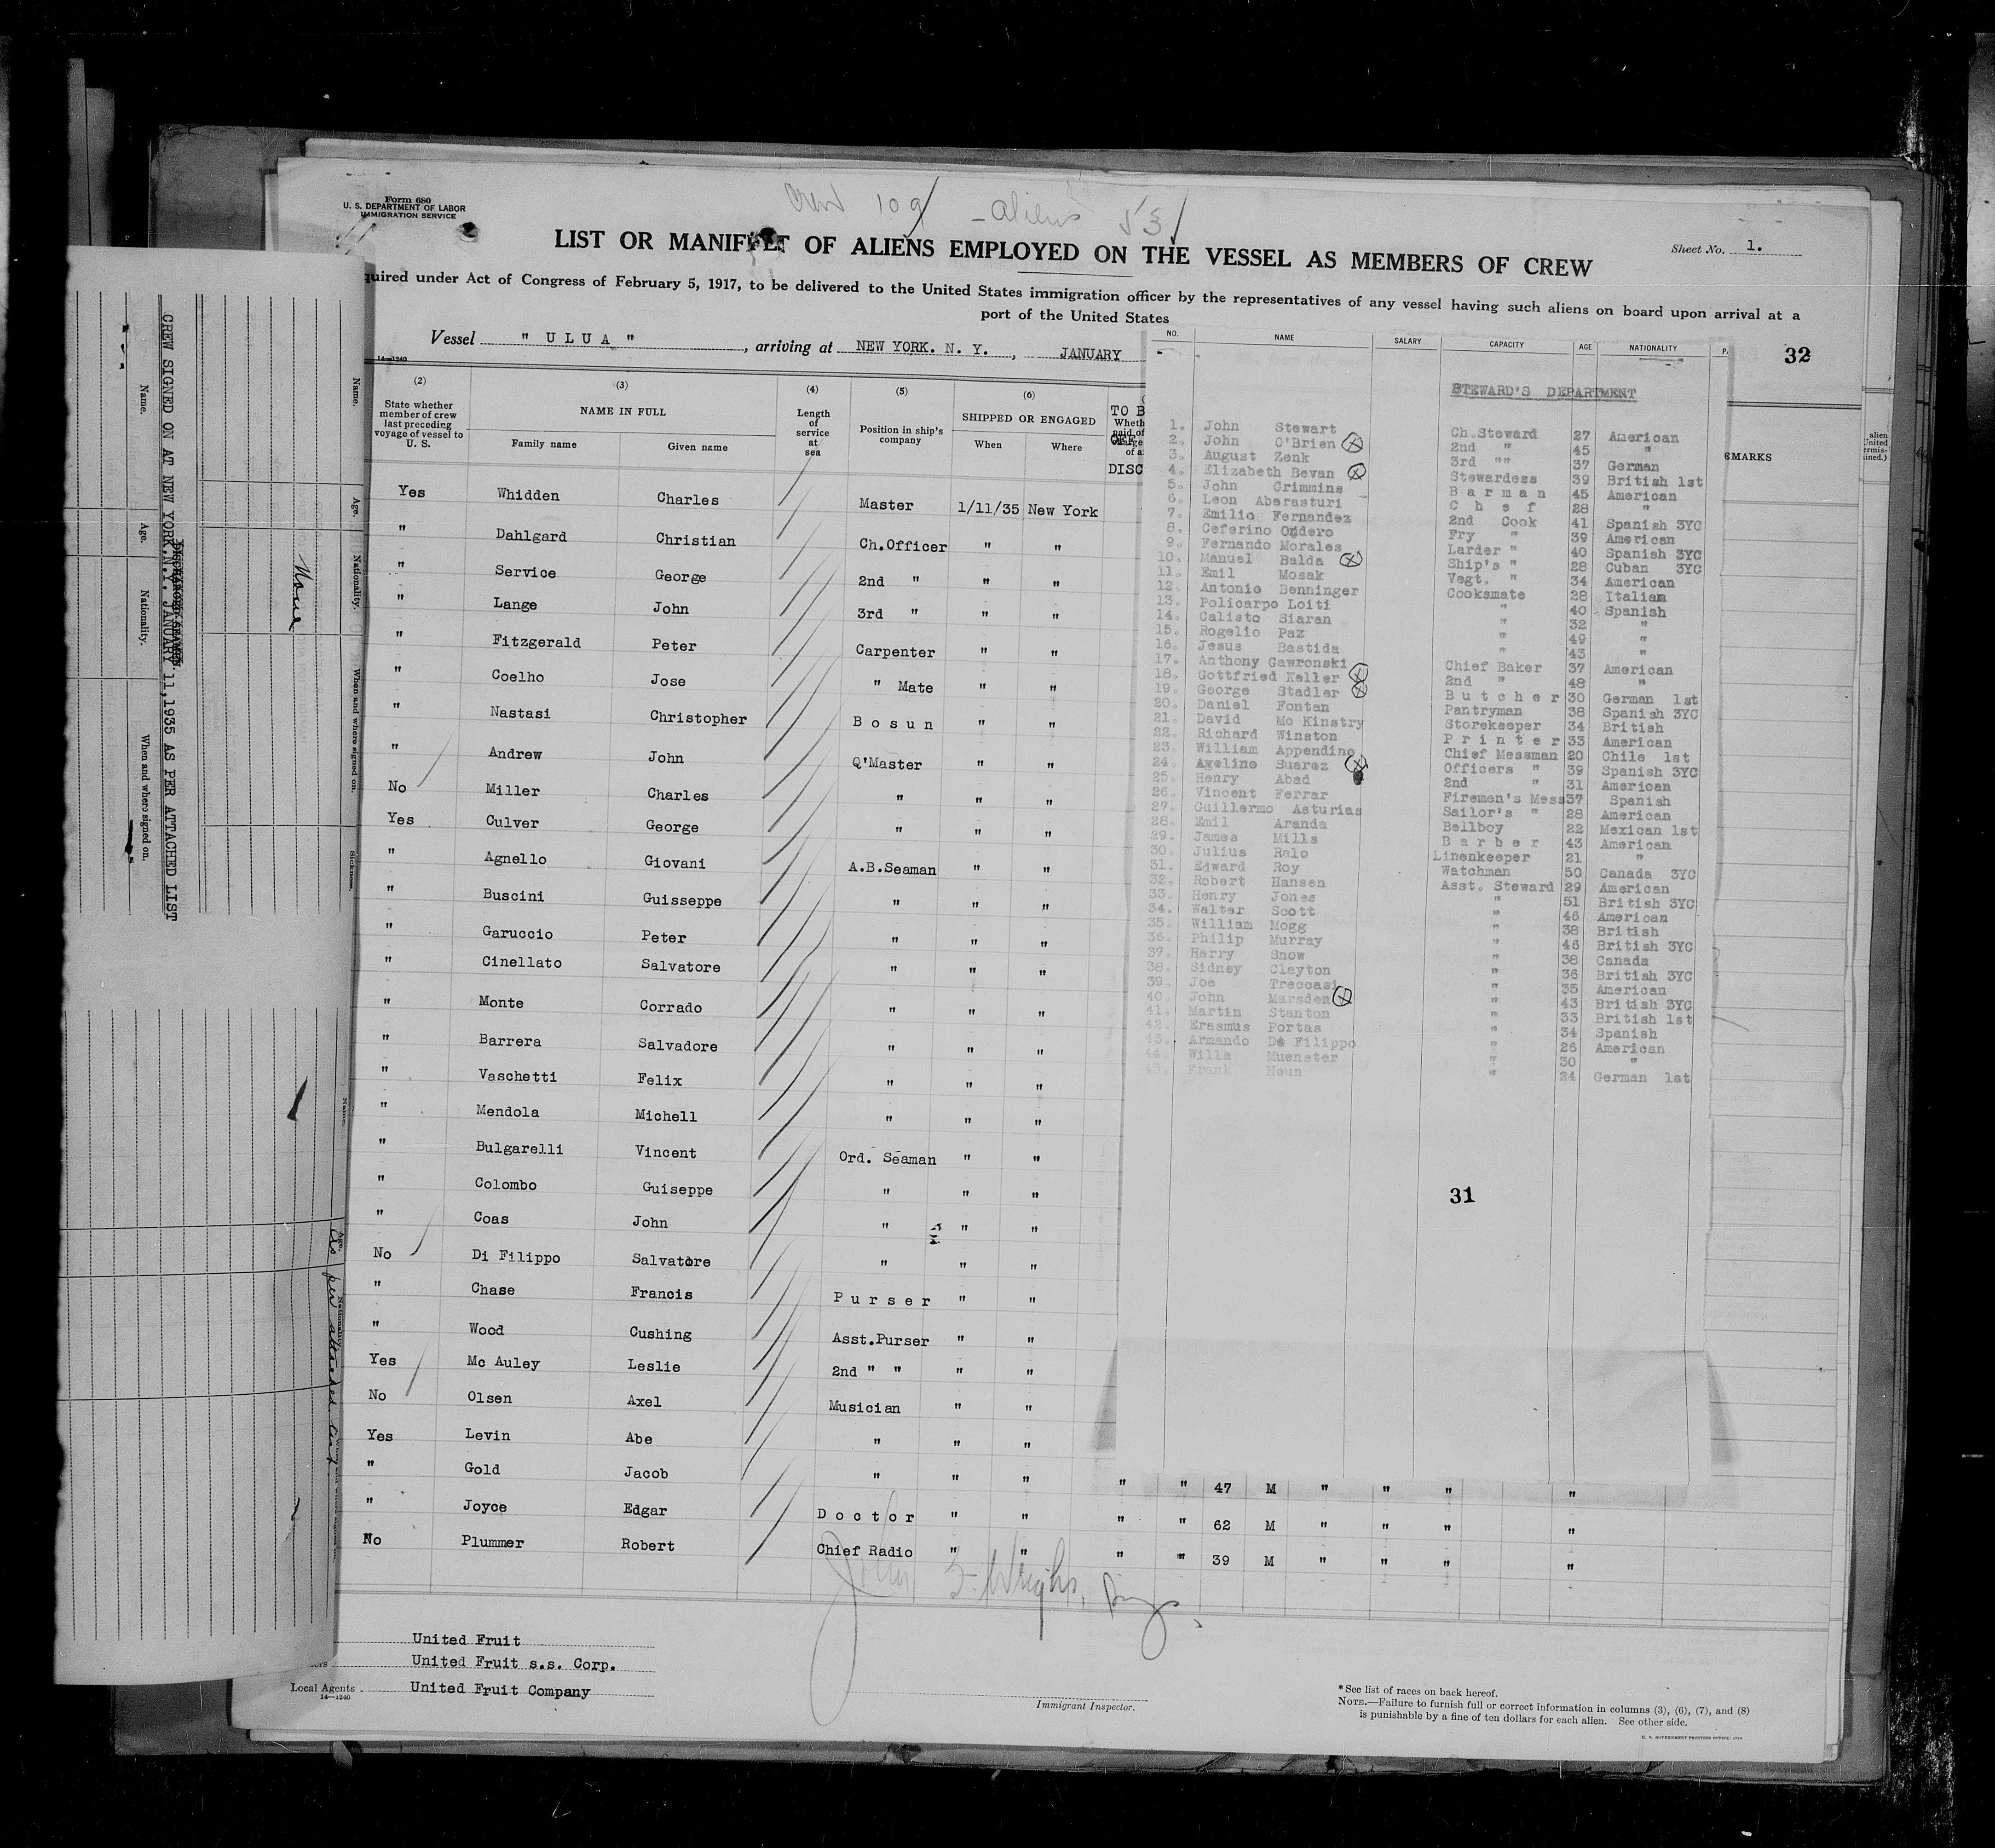 Form 680
U. S. DEPARTMENT OF LABOR
IMMIGRATION SERVICE
Crew 109 - aliens 53
LIST OR MANIFEST OF ALIENS EMPLOYED ON THE VESSEL AS MEMBERS OF CREW
Sheet No. 1.
quired under Act of Congress of February 5, 1917, to be delivered to the United States immigration officer by the representatives of any vessel having such aliens on board upon arrival at a
port of the United States
Vessel " U L U A " , arriving at NEW YORK. N. Y. , JANUARY
32
14—1240
(2) (3) (4) (5) (6)
State whether member of crew last preceding voyage of vessel to U. S.
NAME IN FULL
Family name Given name
Length of service at sea
Position in ship's company
SHIPPED OR ENGAGED
When Where
TO B
DISC
EMARKS
Yes Whidden Charles Master 1/11/35 New York
" Dahlgard Christian Ch.Officer " "
" Service George 2nd " " "
" Lange John 3rd " " "
" Fitzgerald Peter Carpenter " "
" Coelho Jose " Mate " "
" Nastasi Christopher B o s u n " "
" Andrew John Q'Master " "
No Miller Charles " " "
Yes Culver George " " "
" Agnello Giovani A.B.Seaman " "
" Buscini Guisseppe " " "
" Garuccio Peter " " "
" Cinellato Salvatore " " "
" Monte Corrado " " "
" Barrera Salvadore " " "
" Vaschetti Felix " " "
" Mendola Michell " " "
" Bulgarelli Vincent Ord. Seaman " "
" Colombo Guiseppe " " "
" Coas John " " "
No Di Filippo Salvatore " " "
" Chase Francis P u r s e r " "
" Wood Cushing Asst.Purser " "
Yes Mc Auley Leslie 2nd " " " "
No Olsen Axel Musician " "
Yes Levin Abe " " "
" Gold Jacob " " " " " 47 M " " " "
" Joyce Edgar D o c t o r " " " " 62 M " " " "
No Plummer Robert Chief Radio " " " " 39 M " " " "
NO. NAME SALARY CAPACITY AGE NATIONALITY
STEWARD'S DEPARTMENT
1. John Stewart Ch.Steward 27 American
2. John O'Brien 2nd " 45 "
3. August Zenk 3rd "" 37 German
4. Elizabeth Bevan Stewardess 39 British 1st
5. John Crimmins B a r m a n 45 American
6. Leon Aberasturi C h e f 28 "
7. Emilio Fernandez 2nd Cook 41 Spanish 3YC
8. Ceferino Ordero Fry " 39 American
9. Fernando Morales Larder " 40 Spanish 3YC
10. Manuel Balda Ship's " 28 Cuban 3YC
11. Emil Mosak Vegt. " 34 American
12. Antonio Benninger Cooksmate 28 Italian
13. Policarpo Loiti " 40 Spanish
14. Calisto Siaran " 32 "
15. Rogelio Paz " 49 "
16. Jesus Bastida " 43 "
17. Anthony Gawronski Chief Baker 37 American
18. Gottfried Keller 2nd " 48 "
19. George Stadler B u t c h e r 30 German 1st
20. Daniel Fontan Pantryman 38 Spanish 3YC
21. David Mc Kinstry Storekeeper 34 British
22. Richard Winston P r i n t e r 33 American
23. William Appendino Chief Messman 20 Chile 1st
24. Avelino Suarez Officers " 39 Spanish 3YC
25. Henry Abad 2nd " 31 American
26. Vincent Ferrar Firemen's Mess 37 Spanish
27. Guillermo Asturias Sailor's " 28 American
28. Emil Aranda Bellboy 22 Mexican 1st
29. James Mills B a r b e r 43 American
30. Julius Ralo Linenkeeper 21 "
31. Edward Roy Watchman 50 Canada 3YC
32. Robert Hansen Asst. Steward 29 American
33. Henry Jones " 51 British 3YC
34. Walter Scott " 46 American
35. William Mogg " 38 British
36. Philip Murray " 46 British 3YC
37. Harry Snow " 38 Canada
38. Sidney Clayton " 36 British 3YC
39. Joe Treccasi " 35 American
40. John Marsden " 43 British 3YC
41. Martin Stanton " 33 British 1st
42. Erasmus Portas " 34 Spanish
43. Armando De Filippo " 26 American
44. Willa Muenster " 30 "
45. Frank Heun " 24 German 1st
31
CREW SIGNED ON AT NEW YORK.N.Y. JANUARY 11,1935 AS PER ATTACHED LIST
Name. Age. Nationality. When and where signed on.
None
Name. Age. Nationality. When and where signed on. Sickness.
As per attached list
United Fruit
United Fruit s.s. Corp.
Local Agents United Fruit Company
14—1240
Immigrant Inspector.
*See list of races on back hereof.
NOTE.—Failure to furnish full or correct information in columns (3), (6), (7), and (8)
is punishable by a fine of ten dollars for each alien. See other side.